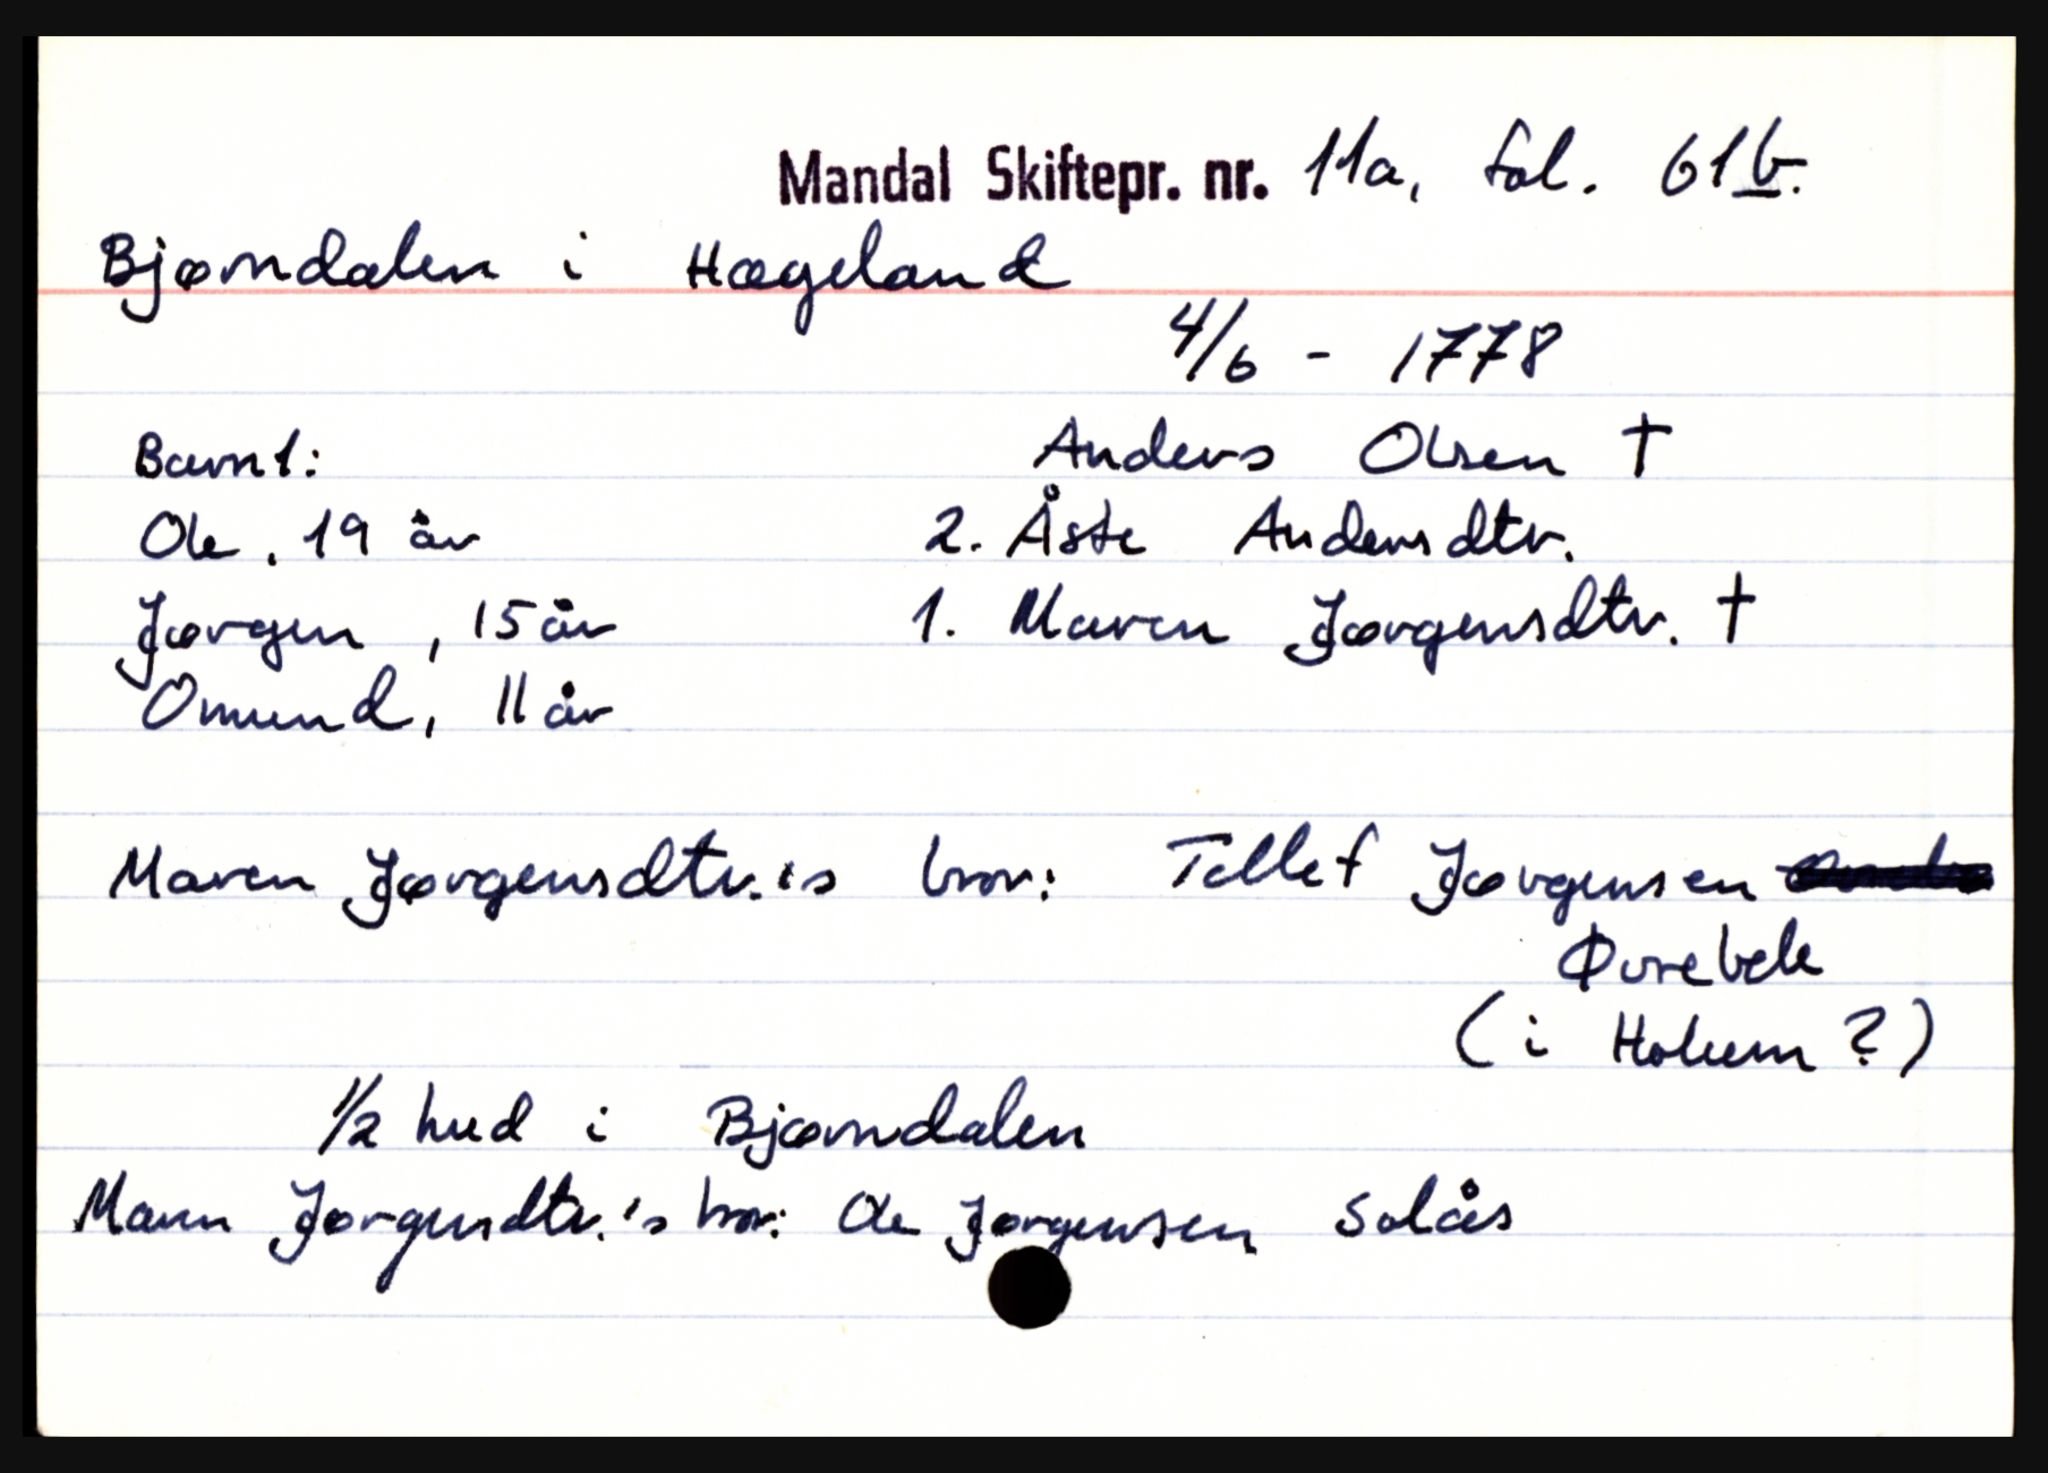 Mandal Skiftepr. nr. 11a, fol. 61b.
Bjørndalen i Hægeland
4/6 - 1778
Barn 1: Anders Olsen †
Ole, 19 år 2. Åste Andersdtr.
Jørgen, 15 år 1. Maren Jørgensdtr. †
Omund, 11 år
Maren Jørgensdtr.'s bror: Tellef Jørgensen
Øvrebele
(i Holum?)
1/2 hud i Bjørndalen
Maren Jørgensdtr.'s bror: Ole Jørgensen Solås